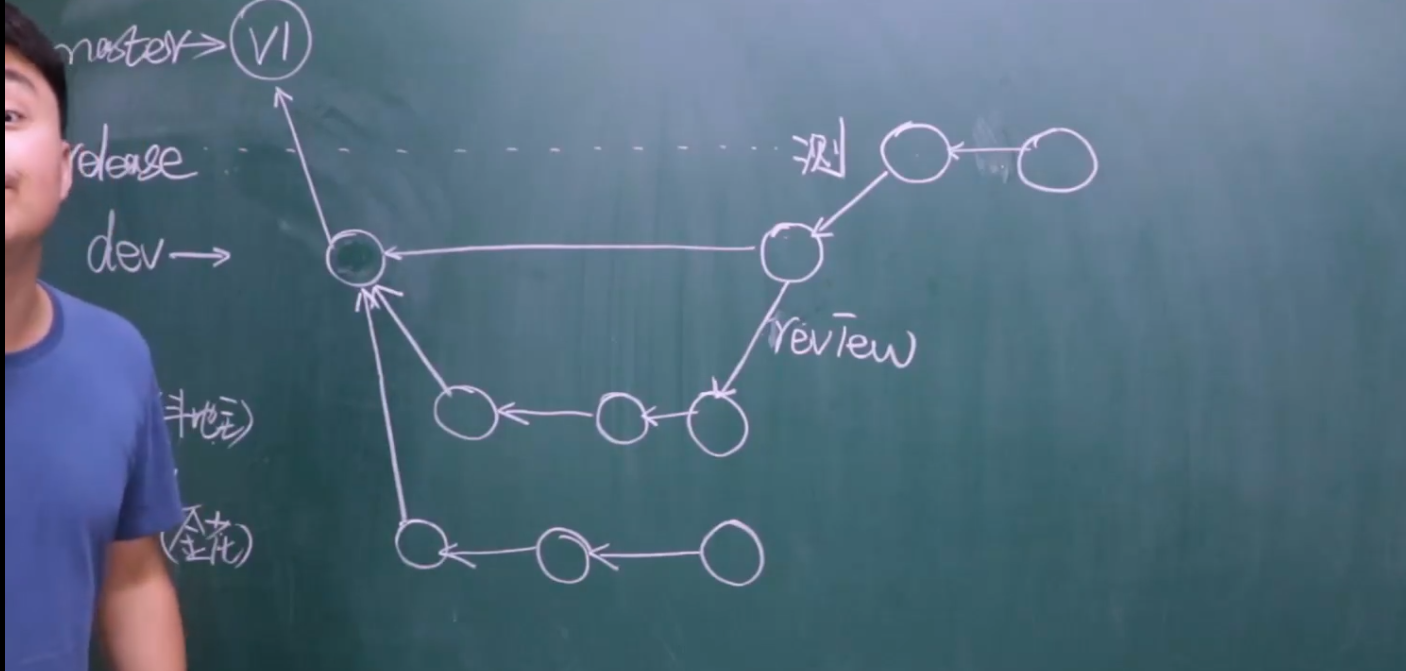 master → V1
release 测
dev →
review
斗地主)
金花)